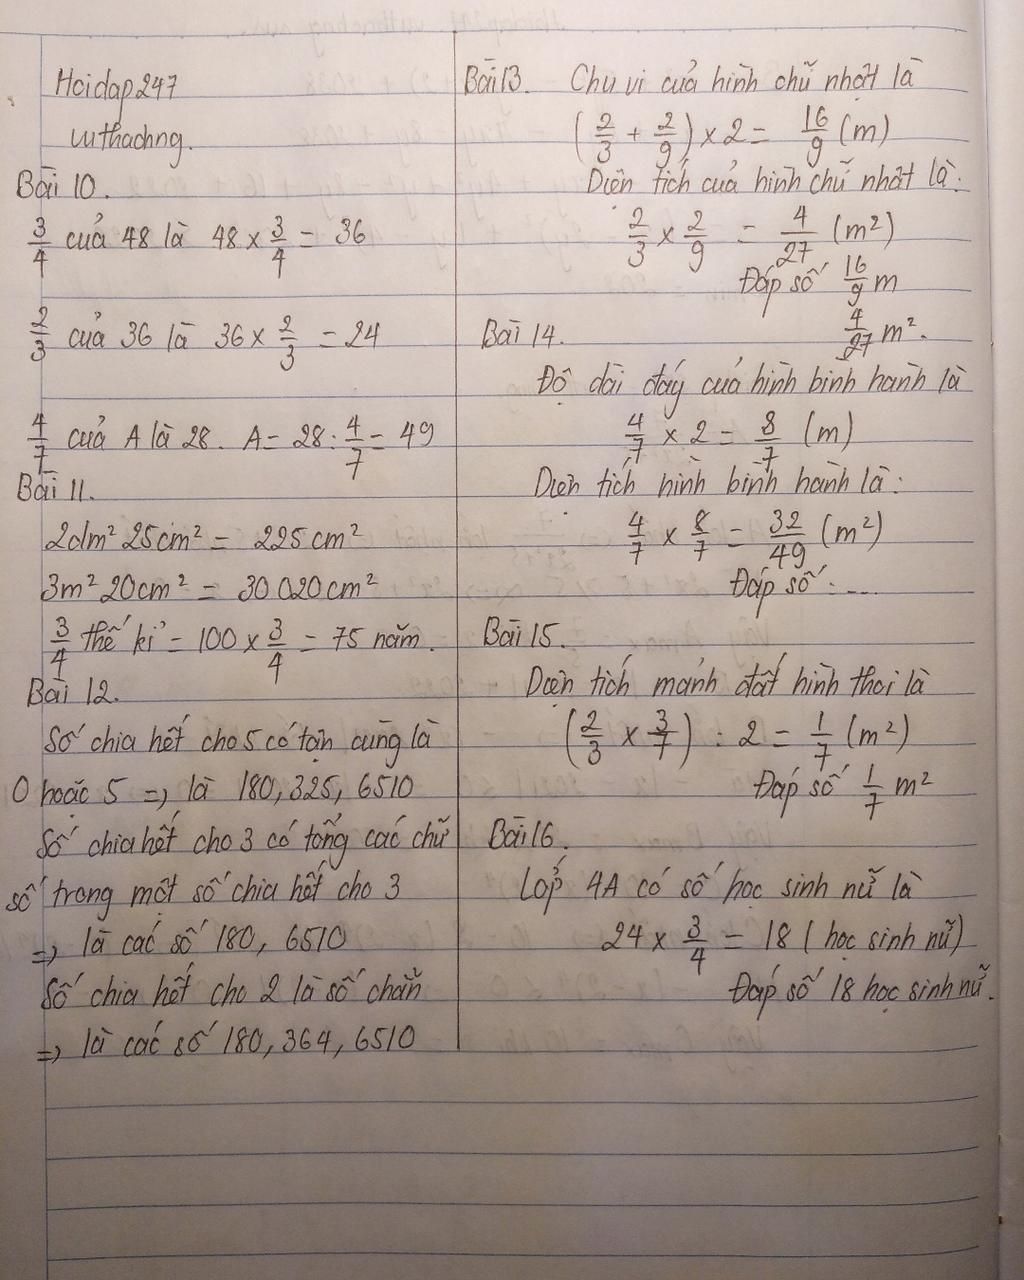 Hoidap247
vuthachng.
Bài 10.
3/4 của 48 là 48 x 3/4 = 36
2/3 của 36 là 36 x 2/3 = 24
4/7 của A là 28. A = 28 : 4/7 = 49
Bài 11.
2dm² 25cm² = 225 cm²
3m² 20cm² = 30 020cm²
3/4 thế kỉ = 100 x 3/4 = 75 năm.
Bài 12.
Số chia hết cho 5 có tận cùng là
0 hoặc 5 => là 180, 325, 6510
Số chia hết cho 3 có tổng các chữ
số trong một số chia hết cho 3
=> là các số 180, 6510
Số chia hết cho 2 là số chẵn
=> là các số 180, 364, 6510
Bài 13. Chu vi của hình chữ nhật là
(2/3 + 2/9) x 2 = 16/9 (m)
Diện tích của hình chữ nhật là:
2/3 x 2/9 = 4/27 (m²)
Đáp số 16/9 m
4/27 m².
Bài 14.
Độ dài đáy của hình bình hành là
4/7 x 2 = 8/7 (m)
Diện tích hình bình hành là:
4/7 x 8/7 = 32/49 (m²)
Đáp số : ...
Bài 15.
Diện tích mảnh đất hình thoi là
(2/3 x 3/7) : 2 = 1/7 (m²)
Đáp số 1/7 m²
Bài 16.
Lớp 4A có số học sinh nữ là
24 x 3/4 = 18 (học sinh nữ)
Đáp số 18 học sinh nữ.